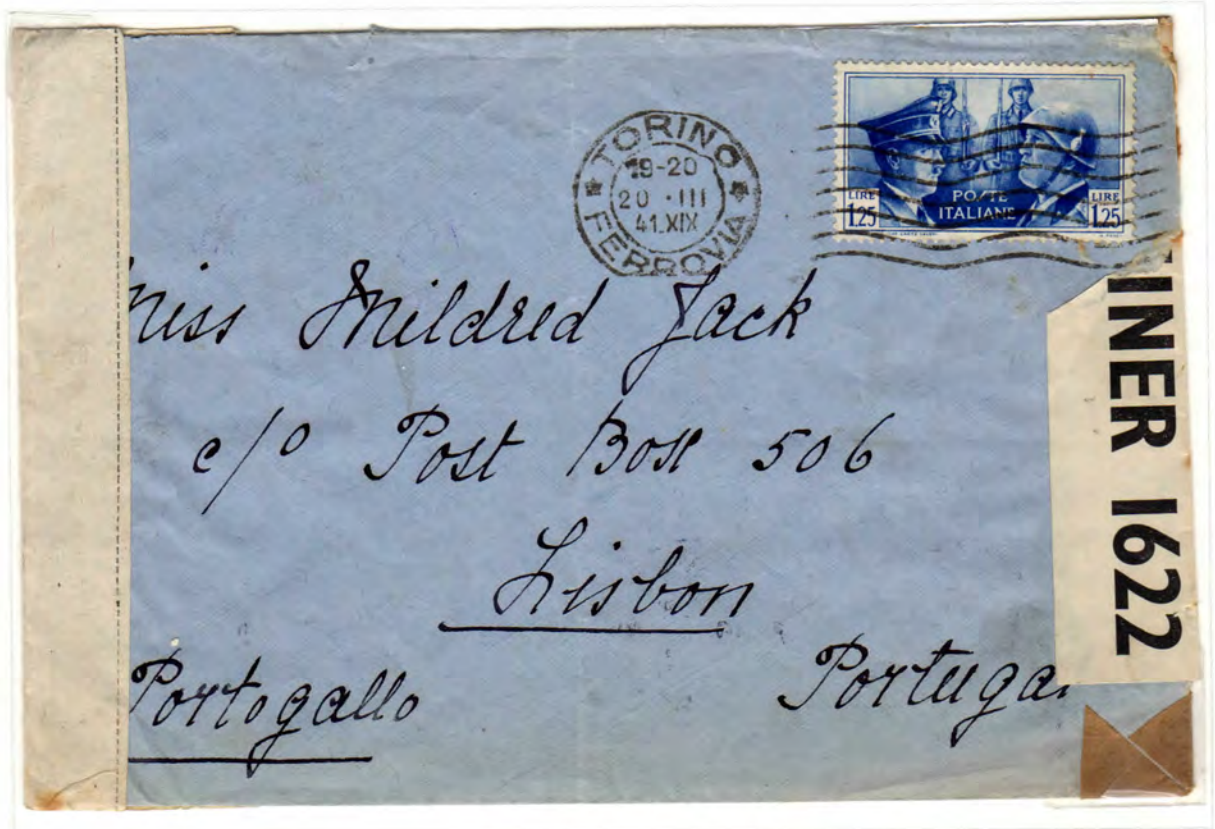 TORINO
19-20
20 · III
41.XIX
FERROVIA
LIRE 1.25
POSTE ITALIANE
LIRE 1.25
Miss Mildred Jack
c/o Post Box 506
Lisbon
Portogallo
Portugal
INER 1622